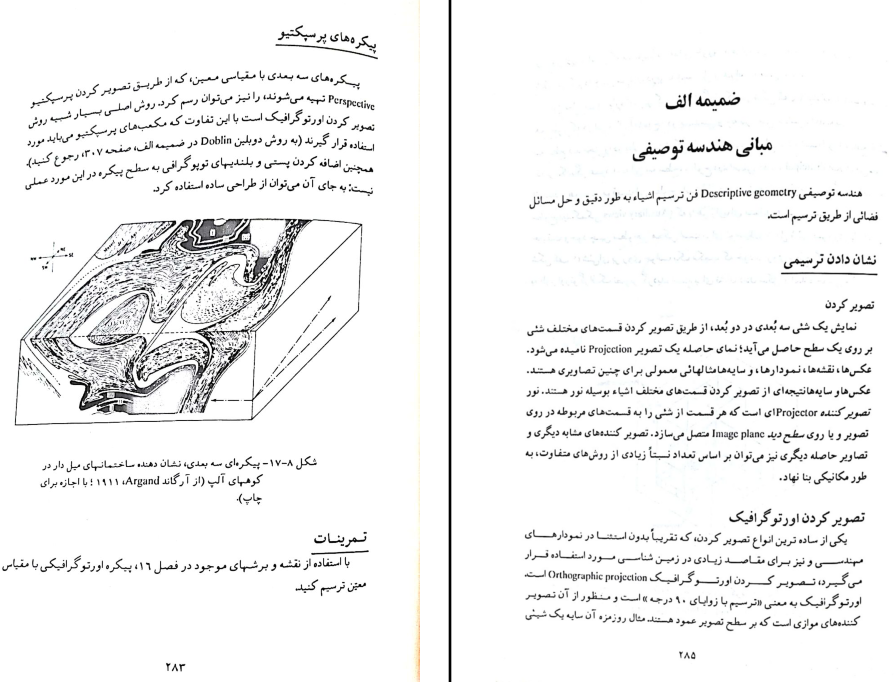 پیکره‌های پرسپکتیو
پیکره‌های سه بعدی با مقیاسی معین، که از طریق تصویر کردن پرسپکتیو
Perspective تهیه می‌شوند، را نیز می‌توان رسم کرد. روش اصلی بسیار شبیه روش
تصویر کردن اورتوگرافیک است با این تفاوت که مکعب‌های پرسپکتیو می‌باید مورد
استفاده قرار گیرند (به روش دوبلین Doblin در ضمیمه الف، صفحه ۳۰۷، رجوع کنید).
همچنین اضافه کردن پستی و بلندیهای توپوگرافی به سطح پیکره در این مورد عملی
نیست: به جای آن می‌توان از طراحی ساده استفاده کرد.
شکل ۸-۱۷- پیکره‌ای سه بعدی، نشان دهنده ساختمانهای میل دار در
کوههای آلپ (از آرگاند Argand، ۱۹۱۱؛ با اجازه برای
چاپ).
تمرینات
با استفاده از نقشه و برشهای موجود در فصل ۱۶، پیکره اورتوگرافیکی با مقیاس
معیّن ترسیم کنید.
۲۸۳
ضمیمه الف
مبانی هندسه توصیفی
هندسه توصیفی Descriptive geometry فن ترسیم اشیاء به طور دقیق و حل مسائل
فضائی از طریق ترسیم است.
نشان دادن ترسیمی
تصویر کردن
نمایش یک شئی سه بُعدی در دو بُعد، از طریق تصویر کردن قسمت‌های مختلف شئی
بر روی یک سطح حاصل می‌آید؛ نمای حاصله یک تصویر Projection نامیده می‌شود.
عکس‌ها، نقشه‌ها، نمودارها، و سایه‌هامثالهائی معمولی برای چنین تصاویری هستند.
عکس‌هاو سایه‌هانتیجه‌ای از تصویر کردن قسمت‌های مختلف اشیاء بوسیله نور هستند. نور
تصویر کننده Projectorای است که هر قسمت از شئی را به قسمت‌های مربوطه در روی
تصویر و یا روی سطح دید Image plane متصل می‌سازد. تصویر کننده‌های مشابه دیگری و
تصاویر حاصله دیگری نیز می‌توان بر اساس تعداد نسبتاً زیادی از روش‌های متفاوت، به
طور مکانیکی بنا نهاد.
تصویر کردن اورتوگرافیک
یکی از ساده ترین انواع تصویر کردن، که تقریباً بدون استثنا در نمودارهای
مهندسی و نیز برای مقاصد زیادی در زمین شناسی مورد استفاده قرار
می‌گیرد، تصویر کردن اورتوگرافیک Orthographic projection است.
اورتوگرافیک به معنی «ترسیم با زوایای ۹۰ درجه» است و منظور از آن تصویر
کننده‌های موازی است که بر سطح تصویر عمود هستند. مثال روزمره آن سایه یک شیئی
۲۸۵